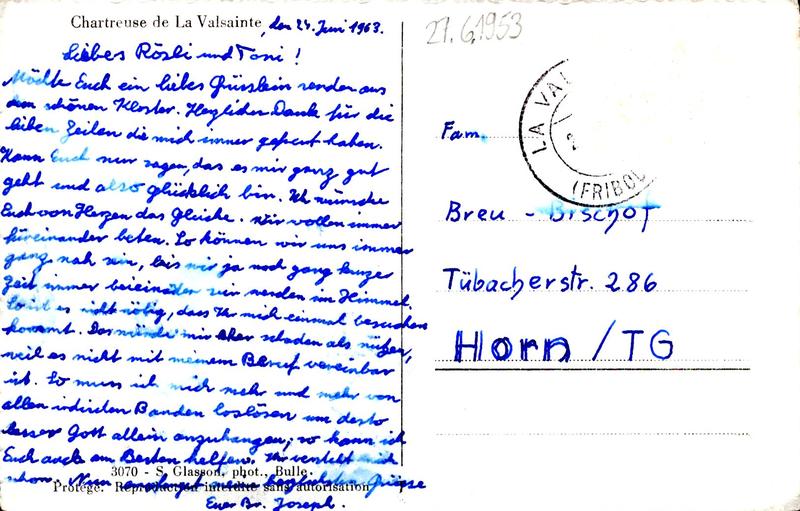 Chartreuse de La Valsainte, den 24. Juni 1963.
Liebes Rösli und Toni!
Möchte Euch ein liebes Grüsslein senden aus
dem schönen Kloster. Herzlichen Dank für die
lieben Zeilen die mich immer gefreut haben.
Kann Euch nur sagen, das es mir ganz gut
geht und also glücklich bin. Ich wünsche
Euch von Herzen das Gleiche. Wir wollen immer
füreinander beten. So können wir uns immer
ganz nah sein, bis wir ja nach ganz kurzer
Zeit immer beieinader sein werden im Himmel.
So ist es nicht nötig, dass Ihr mich einmal besuchen
kommt. Das würde mir eher schaden als nützen,
weil es nicht mit meinem Beruf vereinbar
ist. So muss ich mich mehr und mehr von
allen irdischen Banden loslösen um desto
besser Gott allein anzuhangen, so kann ich
Euch auch am Besten helfen. Ihr versteht mich
schon. Nun herzlichsten Grüsse
Euer Br. Joseph.
3070 - S. Glasson, phot., Bulle.
Protégé. Reproduction interdite sans autorisation
27.6.1953
LA VAL
(FRIBOU
Fam.
Breu - Bischof
Tübacherstr. 286
Horn / TG